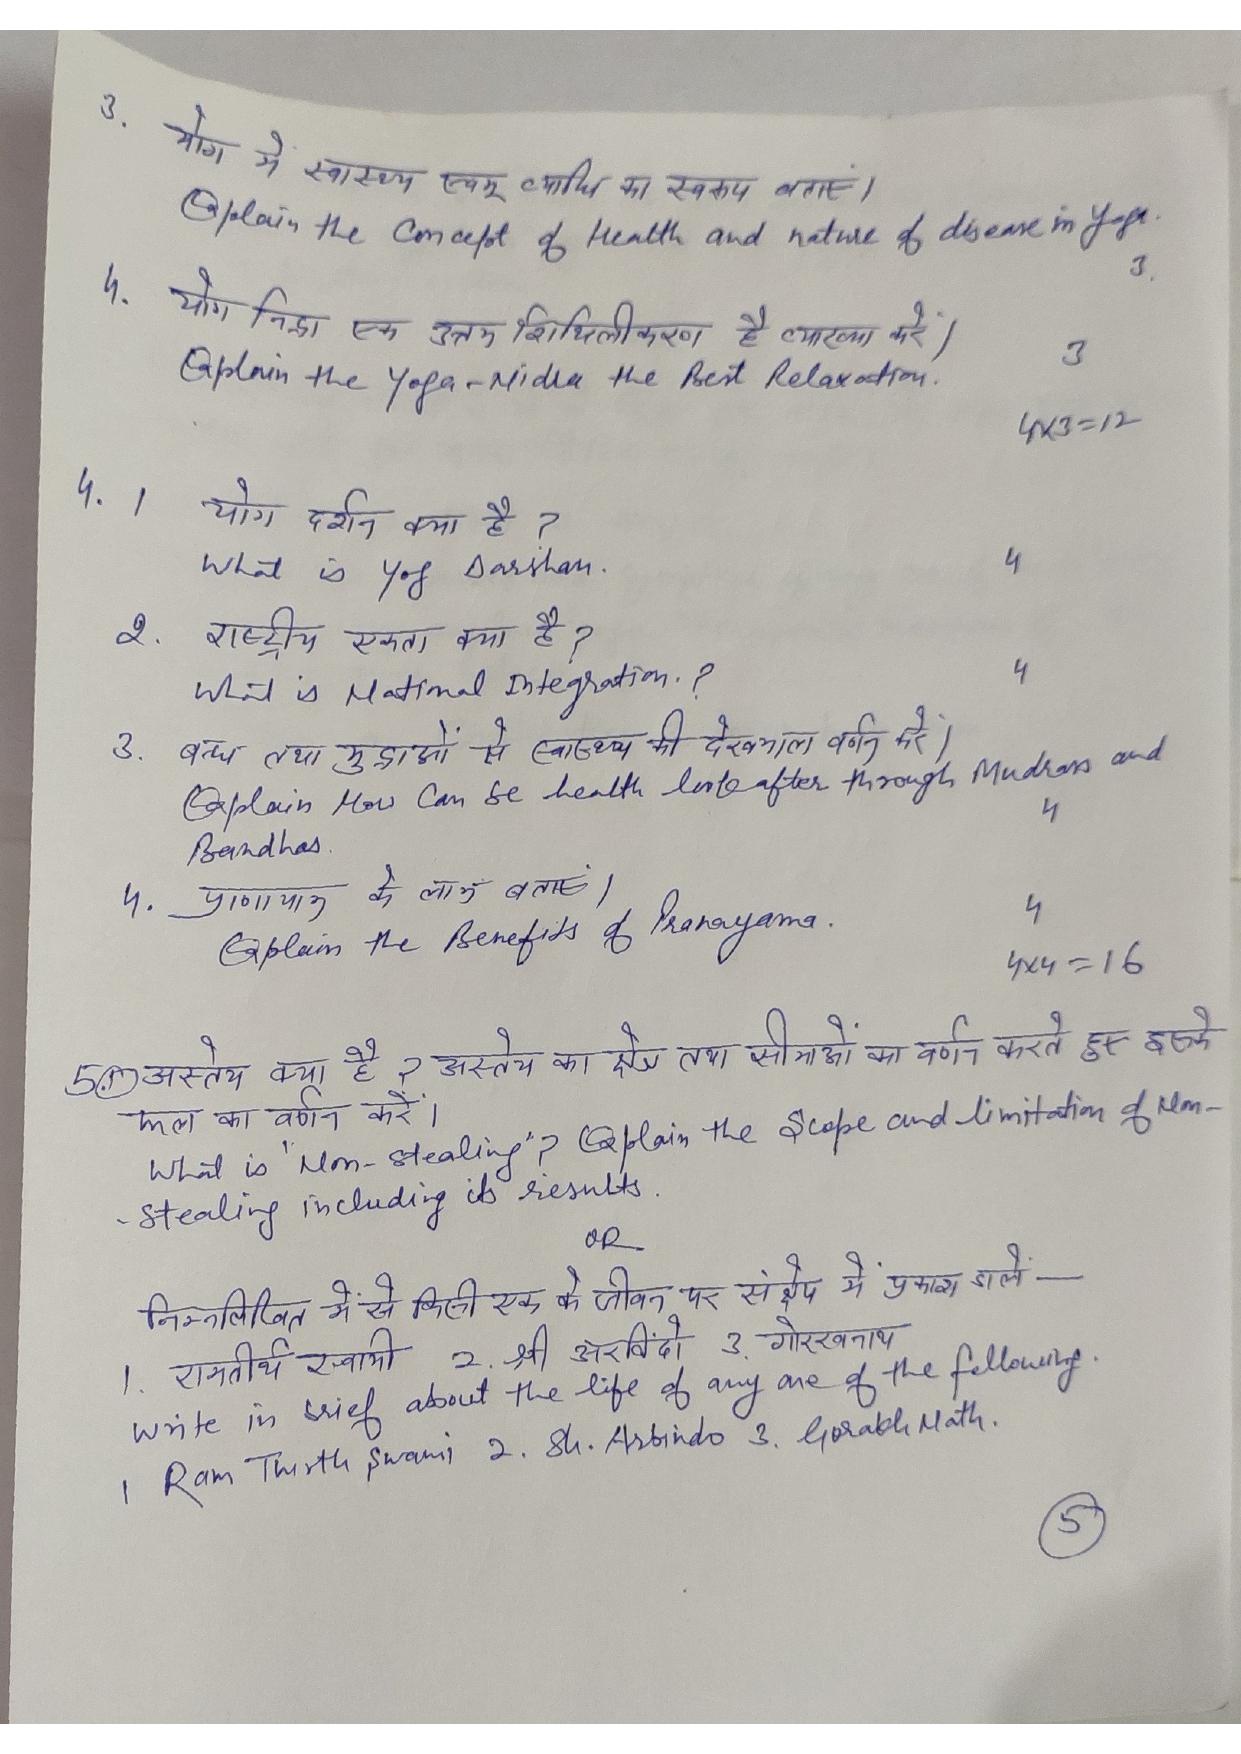 3. योग में स्वास्थ्य एवम् व्याधि का स्वरूप बताएं।
Explain the Concept of Health and nature of disease in Yoga.
3.
4. योग निद्रा एक उत्तम शिथिलीकरण है व्याख्या करें। 3
Explain the Yoga-Nidra the Best Relaxation.
4x3=12
4. 1 योग दर्शन क्या है ?
What is Yog Darshan. 4
2. राष्ट्रीय एकता क्या है ?
What is National Integration. ? 4
3. बन्ध तथा मुद्राओं से स्वास्थ्य की देखभाल वर्णन करें।
Explain How Can be health look after through Mudras and
Bandhas. 4
4. प्राणायाम के लाभ बताएं। 4
Explain the Benefits of Pranayama.
4x4=16
5 (1) अस्तेय क्या है ? अस्तेय का क्षेत्र तथा सीमाओं का वर्णन करते हुए इसके
फल का वर्णन करें।
What is "Non-stealing"? Explain the Scope and limitation of Non-
-stealing including its results.
OR
निम्नलिखित में से किसी एक के जीवन पर संक्षेप में प्रकाश डालें —
1. रामतीर्थ स्वामी 2. श्री अरविंदो 3. गोरखनाथ
Write in brief about the life of any one of the following.
1 Ram Thirth Swami 2. Sh. Arbindo 3. Gorakh Nath.
5